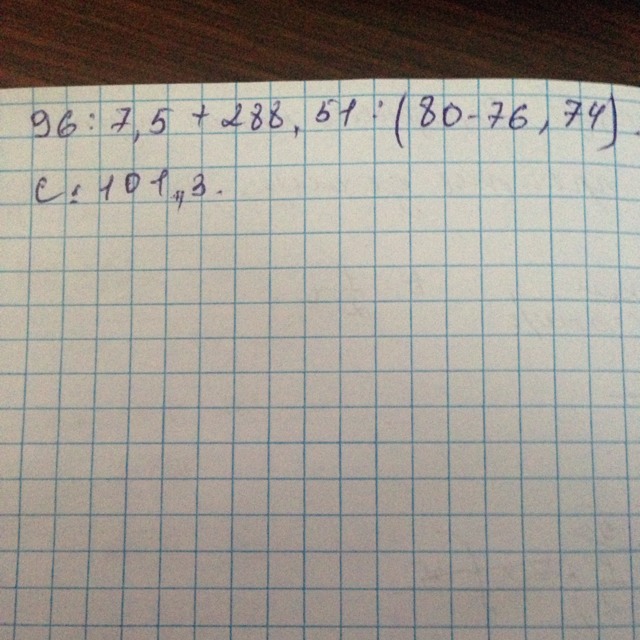 96:7,5+288,51:(80-76,74)
с:101,3.